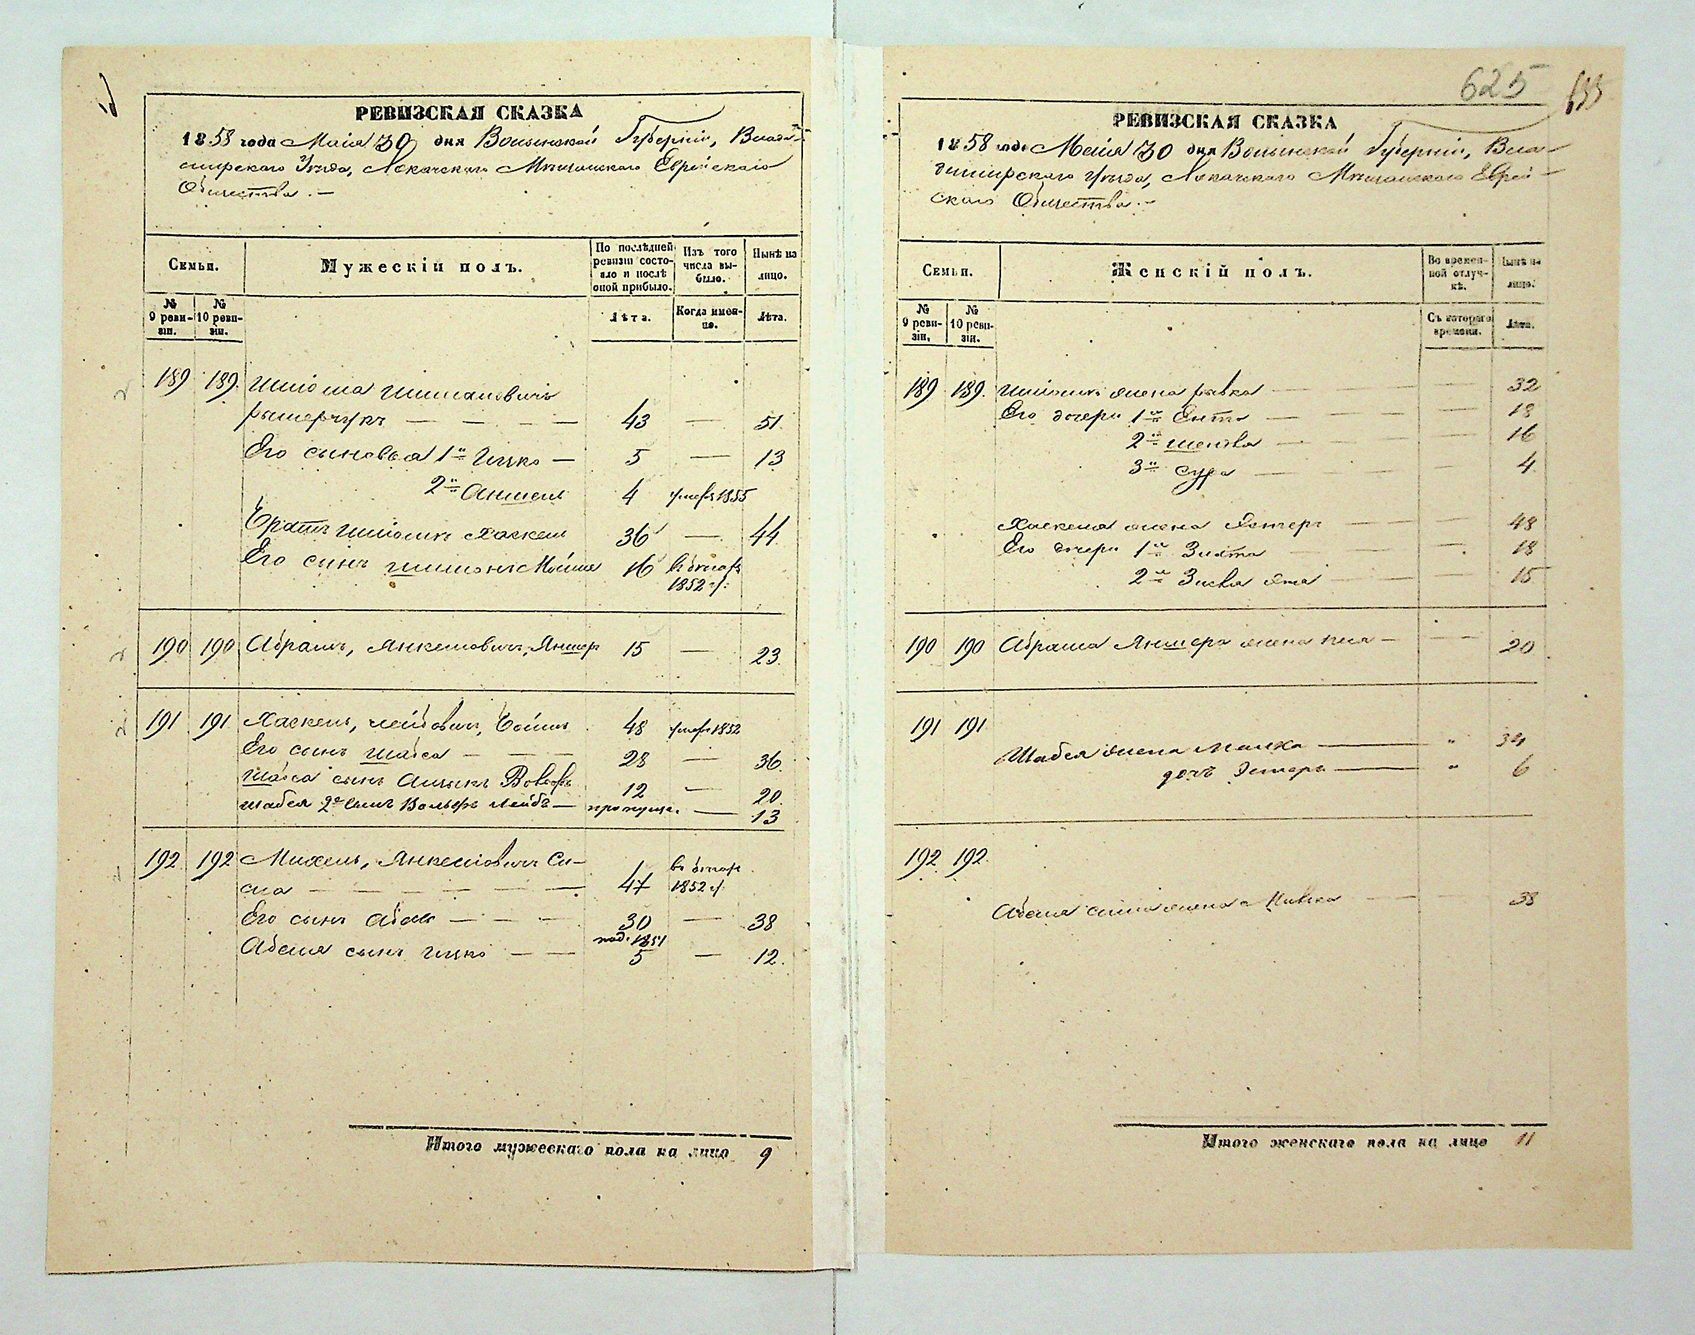 РЕВИЗСКАЯ СКАЗКА
1858 года Маія 30 дня Волынской Губерніи, Влади-
мирскаго Уѣзда, Локачскаго Мѣщанскаго Еврейскаго
Общества. —
Семьи.
Мужескій полъ.
По послѣдней ревизіи состояло и послѣ оной прибыло.
Изъ того числа выбыло.
Нынѣ на лицо.
№ 9 ревизіи.
№ 10 ревизіи.
Лѣта.
Когда именно.
Лѣта.
189 189. Шліома Шимановичъ
43 — 51.
Его сыновья 1й Ицко — 5 — 13
2й Аншель 4 умер. 1855
Братъ Шліомы Хаскель 36 — 44
Его сынъ 16
1852 г.
190 190 Абрамъ, Янкелевичъ, 15 — 23.
191 191. Хаскель, Лейбовичъ, 48 умер. 1852
Его сынъ Шабса — 28 — 36.
Шабса сынъ 12 — 20.
Шабсея 2й сынъ Вольфъ Лейбъ — пропущ. — 13
192 192 Михель, Янкелевичъ Си-
47 1852 г.
Его сынъ Абель — 30 — 38
1851
Абеля сынъ Ицко — 5 — 12.
Итого мужескаго пола на лицо 9
625
РЕВИЗСКАЯ СКАЗКА
1858 года Маія 30 дня Волынской Губерніи, Вла-
димирскаго Уѣзда, Локачскаго Мѣщанскаго Еврей-
скаго Общества. —
Семьи.
Женскій полъ.
Во временной отлучкѣ.
Нынѣ на лицо.
№ 9 ревизіи.
№ 10 ревизіи.
Съ котораго времени.
Лѣта.
189 189. Шліомы жена Рывка — 32
Его дочери 1я Ента — 18
2я — 16
3я Сура — 4
Хаскеля жена Эстеръ — 48
Его дочери 1я Злата — 18
2я — 15
190 190 Абрама жена — 20
191 191
Шабсея жена Малка — " 34
дочь Эстеръ — " 6
192 192.
Абеля жена — 38
Итого женскаго пола на лицо 11